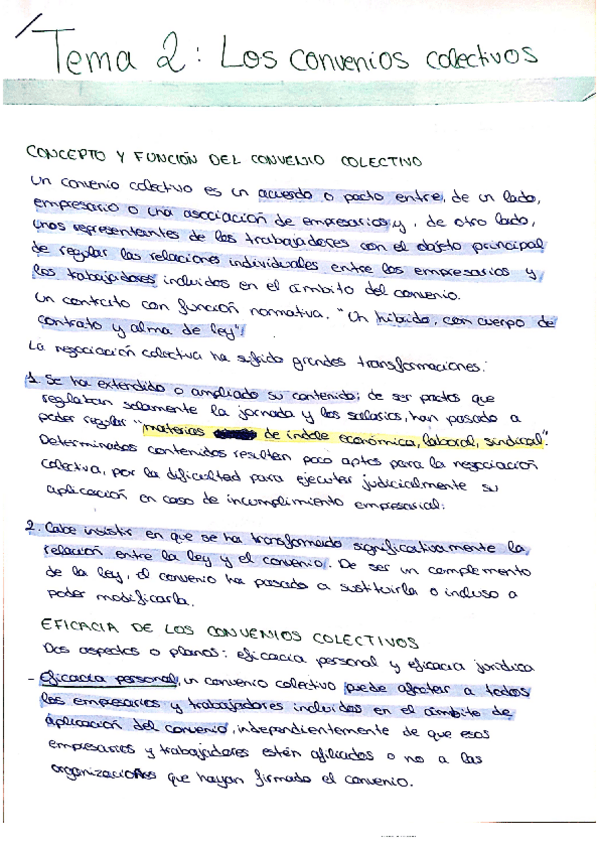 Tema 2: Los convenios colectivos
CONCEPTO Y FUNCIÓN DEL CONVENIO COLECTIVO
Un convenio colectivo es un acuerdo o pacto entre, de un lado,
empresario o una asociación de empresarios y, de otro lado,
unos representantes de los trabajadores con el objeto principal
de regular las relaciones individuales entre los empresarios y
los trabajadores incluidos en el ámbito del convenio.
Un contrato con función normativa. "Un híbrido, con cuerpo de
contrato y alma de ley".
La negociación colectiva ha sufrido grandes transformaciones:
1. Se ha extendido o ampliado su contenido; de ser pactos que
reglaban solamente la jornada y los salarios, han pasado a
poder regular "materias de índole económica, laboral, sindical".
Determinados contenidos resultan poco aptos para la negociación
colectiva, por la dificultad para ejecutar judicialmente su
aplicación en caso de incumplimiento empresarial.
2. Cabe insistir en que se ha transformado significativamente la
relación entre la ley y el convenio. De ser un complemento
de la ley, el convenio ha pasado a sustituirla o incluso a
poder modificarla.
EFICACIA DE LOS CONVENIOS COLECTIVOS
Dos aspectos o planos: eficacia personal y eficacia jurídica
- Eficacia personal, un convenio colectivo puede afectar a todos
los empresarios y trabajadores incluidos en el ámbito de
aplicación del convenio, independientemente de que esos
empresarios y trabajadores estén afiliados o no a las
organizaciones que hayan firmado el convenio.